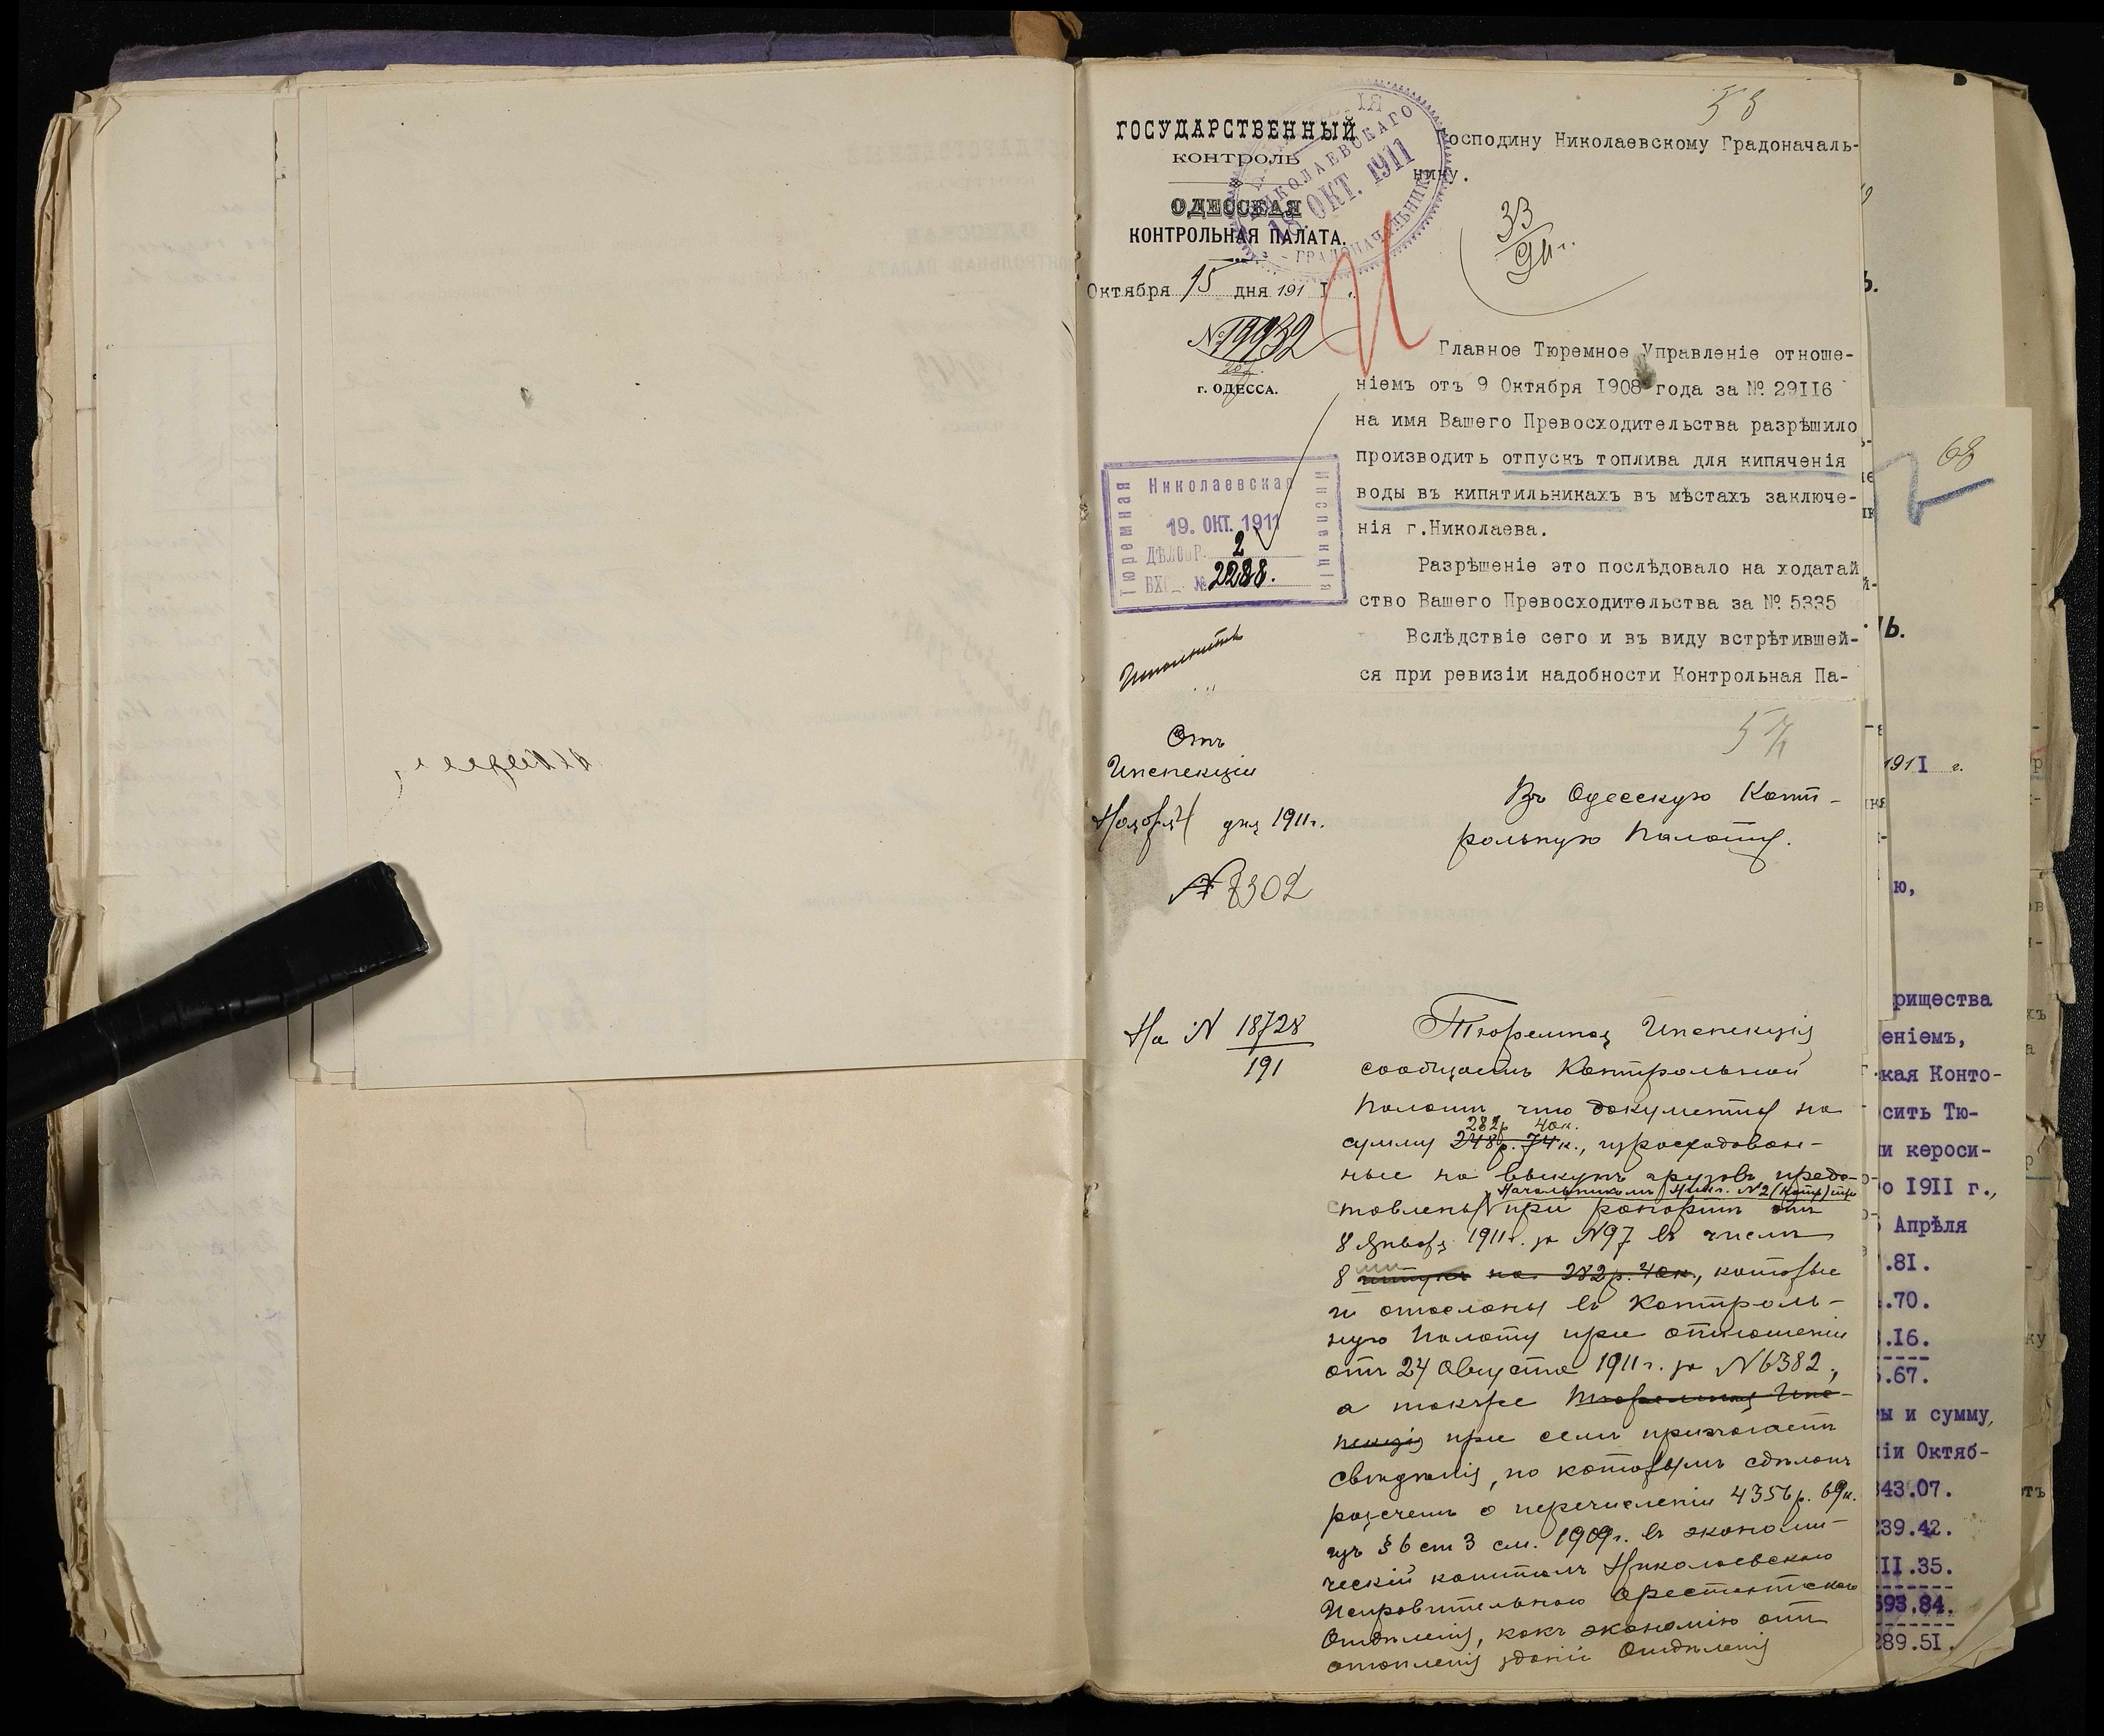 ГОСУДАРСТВЕННЫЙ
КОНТРОЛЬ
ОДЕССКАЯ
КОНТРОЛЬНАЯ ПАЛАТА.
Октября 15 дня 191 I г.
№ 19932
г. ОДЕССА.
НИКОЛАЕВСКАГО
18 ОКТ. 1911
ГРАДОНАЧАЛЬНИКА
58
Господину Николаевскому Градоначаль-
нику.
33
Главное Тюремное Управленіе отноше-
ніемъ отъ 9 Октября 1908 года за № 29II6
на имя Вашего Превосходительства разрѣшило
производить отпускъ топлива для кипяченія
воды въ кипятильникахъ въ мѣстахъ заключе-
нія г.Николаева.
Разрѣшеніе это послѣдовало на ходатай
ство Вашего Превосходительства за № 5335
Вслѣдствіе сего и въ виду встрѣтившей-
ся при ревизіи надобности Контрольная Па-
Тюремная
Николаевская
Инспекція
19. ОКТ. 1911
ДѢЛОПР. 2
ВХ. № 2288.
Исполнить
57
Отъ
Инспекціи
Ноября 4 дня 1911г.
№ 8302
Въ Одесскую Конт-
рольную Палату.
На № 18728
191
Тюремная Инспекція
сообщаетъ Контрольной
Палатѣ, что документы на
282р. 40к.
сумму 248р. 74к., израсходован-
ные на выкупъ грузовъ, предс-
Начальникомъ Ник. №2 (Катр) тюр
тавлены при рапортѣ отъ
8 Января 1911г. за №97 въ числѣ
8 штукъ на 282р. 40к., которые
и отосланы въ Контроль-
ную Палату при отношеніи
отъ 24 Августа 1911г. за №6382,
а также Тюремная Инс-
пекція при семъ прилагаетъ
свѣдѣнія, по которымъ сдѣланъ
разсчетъ о перечисленіи 4356р. 69к.
изъ §6 ст 3 см. 1909г. въ экономи-
ческій капиталъ Николаевскаго
Исправительнаго Арестантскаго
Отдѣленія, какъ экономію отъ
отопленія зданій Отдѣленія
68
191I г.
ю,
рищества
еніемъ,
кая Конто-
сить Тю-
и кероси-
о I9II г.,
Апрѣля
.8I.
.70.
.I6.
.67.
ы и сумму,
іи Октяб-
343.07.
239.42.
III.35.
593.84.
289.5I.